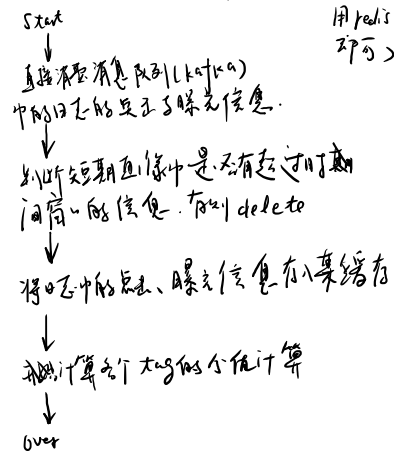 Start
用redis
即可
直接消费消息队列(kafka)
中的日志的点击与曝光信息.
判断短期画像中是否有超过时期
间窗口的信息.有则delete
将日志中的点击、曝光信息存入某缓存
计算各个tag的个值计算
over